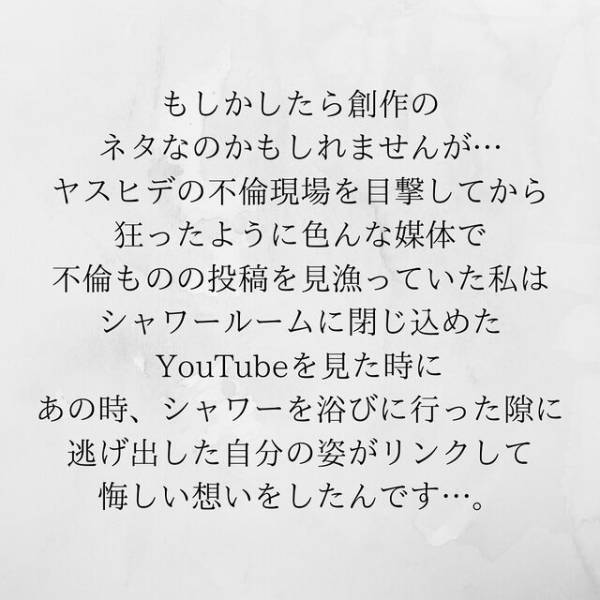 もしかしたら創作の
ネタなのかもしれませんが…
ヤスヒデの不倫現場を目撃してから
狂ったように色んな媒体で
不倫ものの投稿を見漁っていた私は
シャワールームに閉じ込めた
YouTubeを見た時に
あの時、シャワーを浴びに行った隙に
逃げ出した自分の姿がリンクして
悔しい想いをしたんです…。